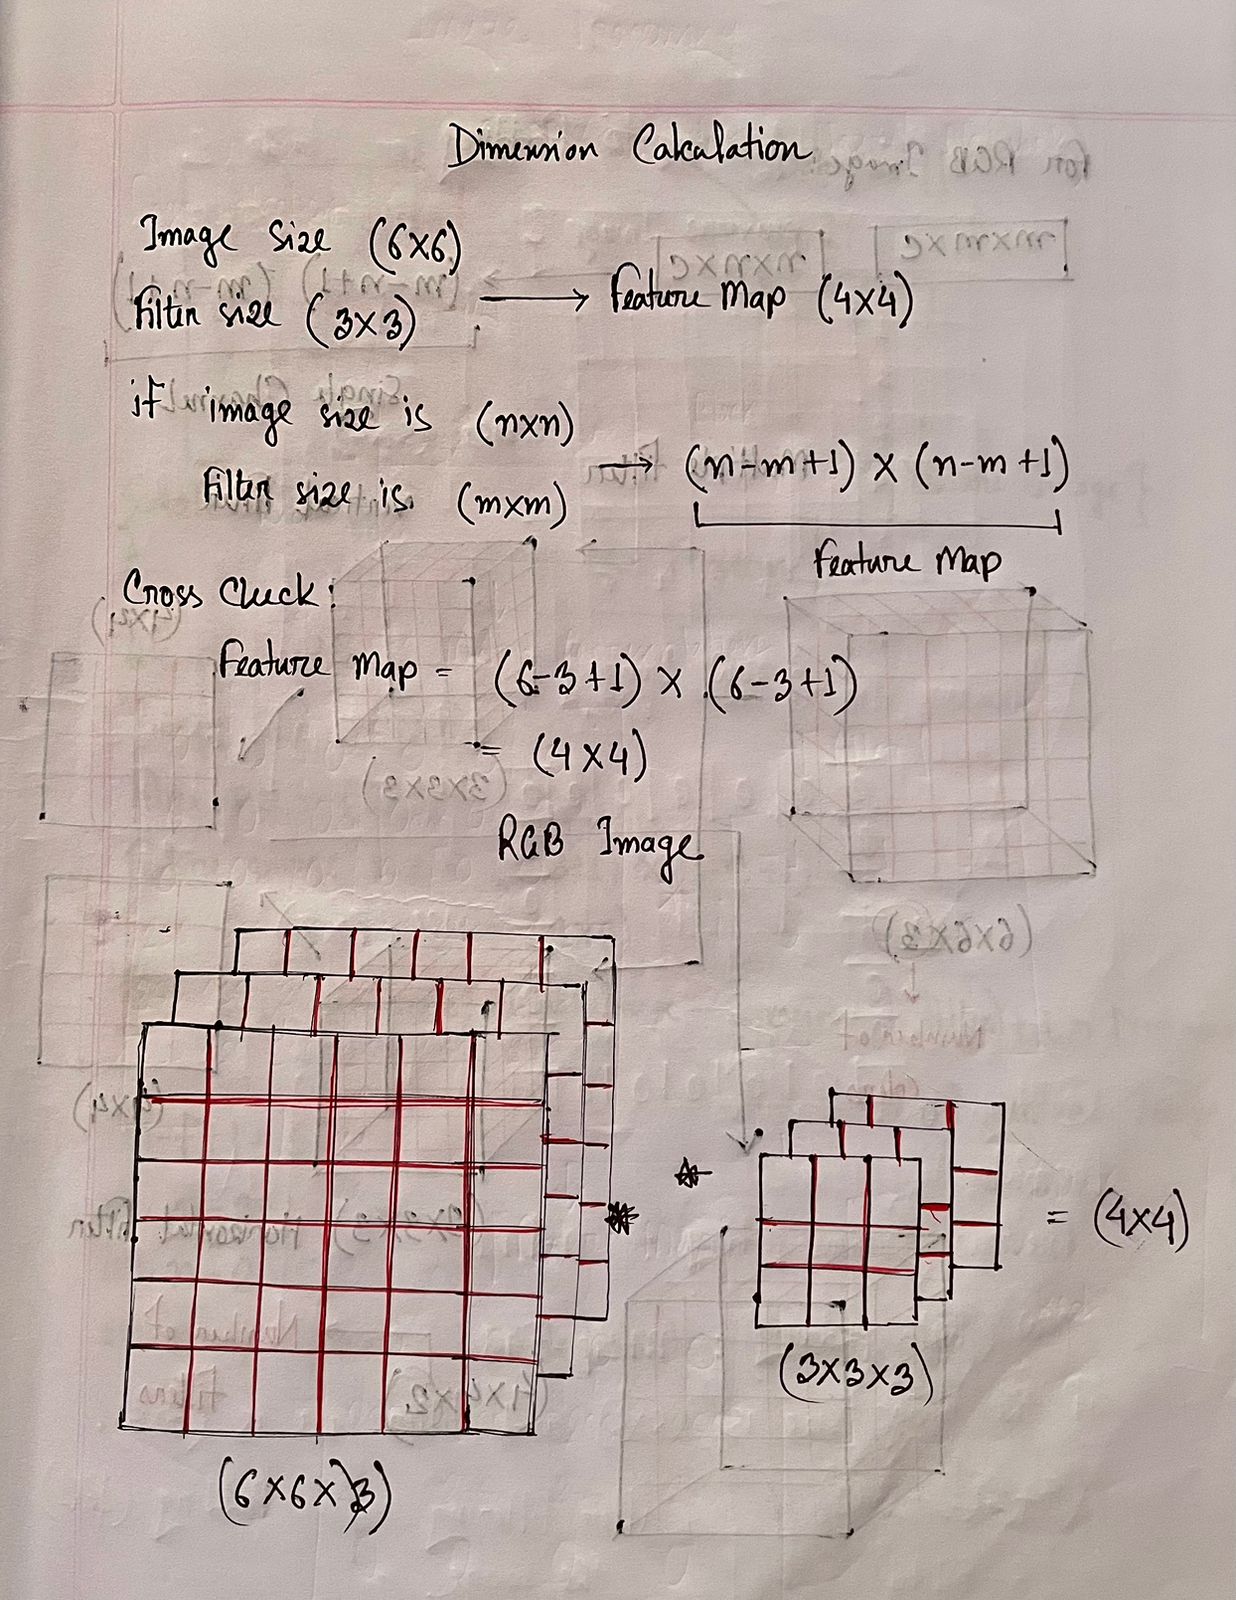 Dimension Calculation
Image Size (6×6)
Filter size (3×3) → Feature Map (4×4)
if image size is (n×n)
Filter size is. (m×m) → (n-m+1) × (n-m+1)
Feature Map
Cross Check:
Feature Map = (6-3+1) × (6-3+1)
= (4×4)
RGB Image
* * = (4×4)
(3×3×3)
(6×6×3)